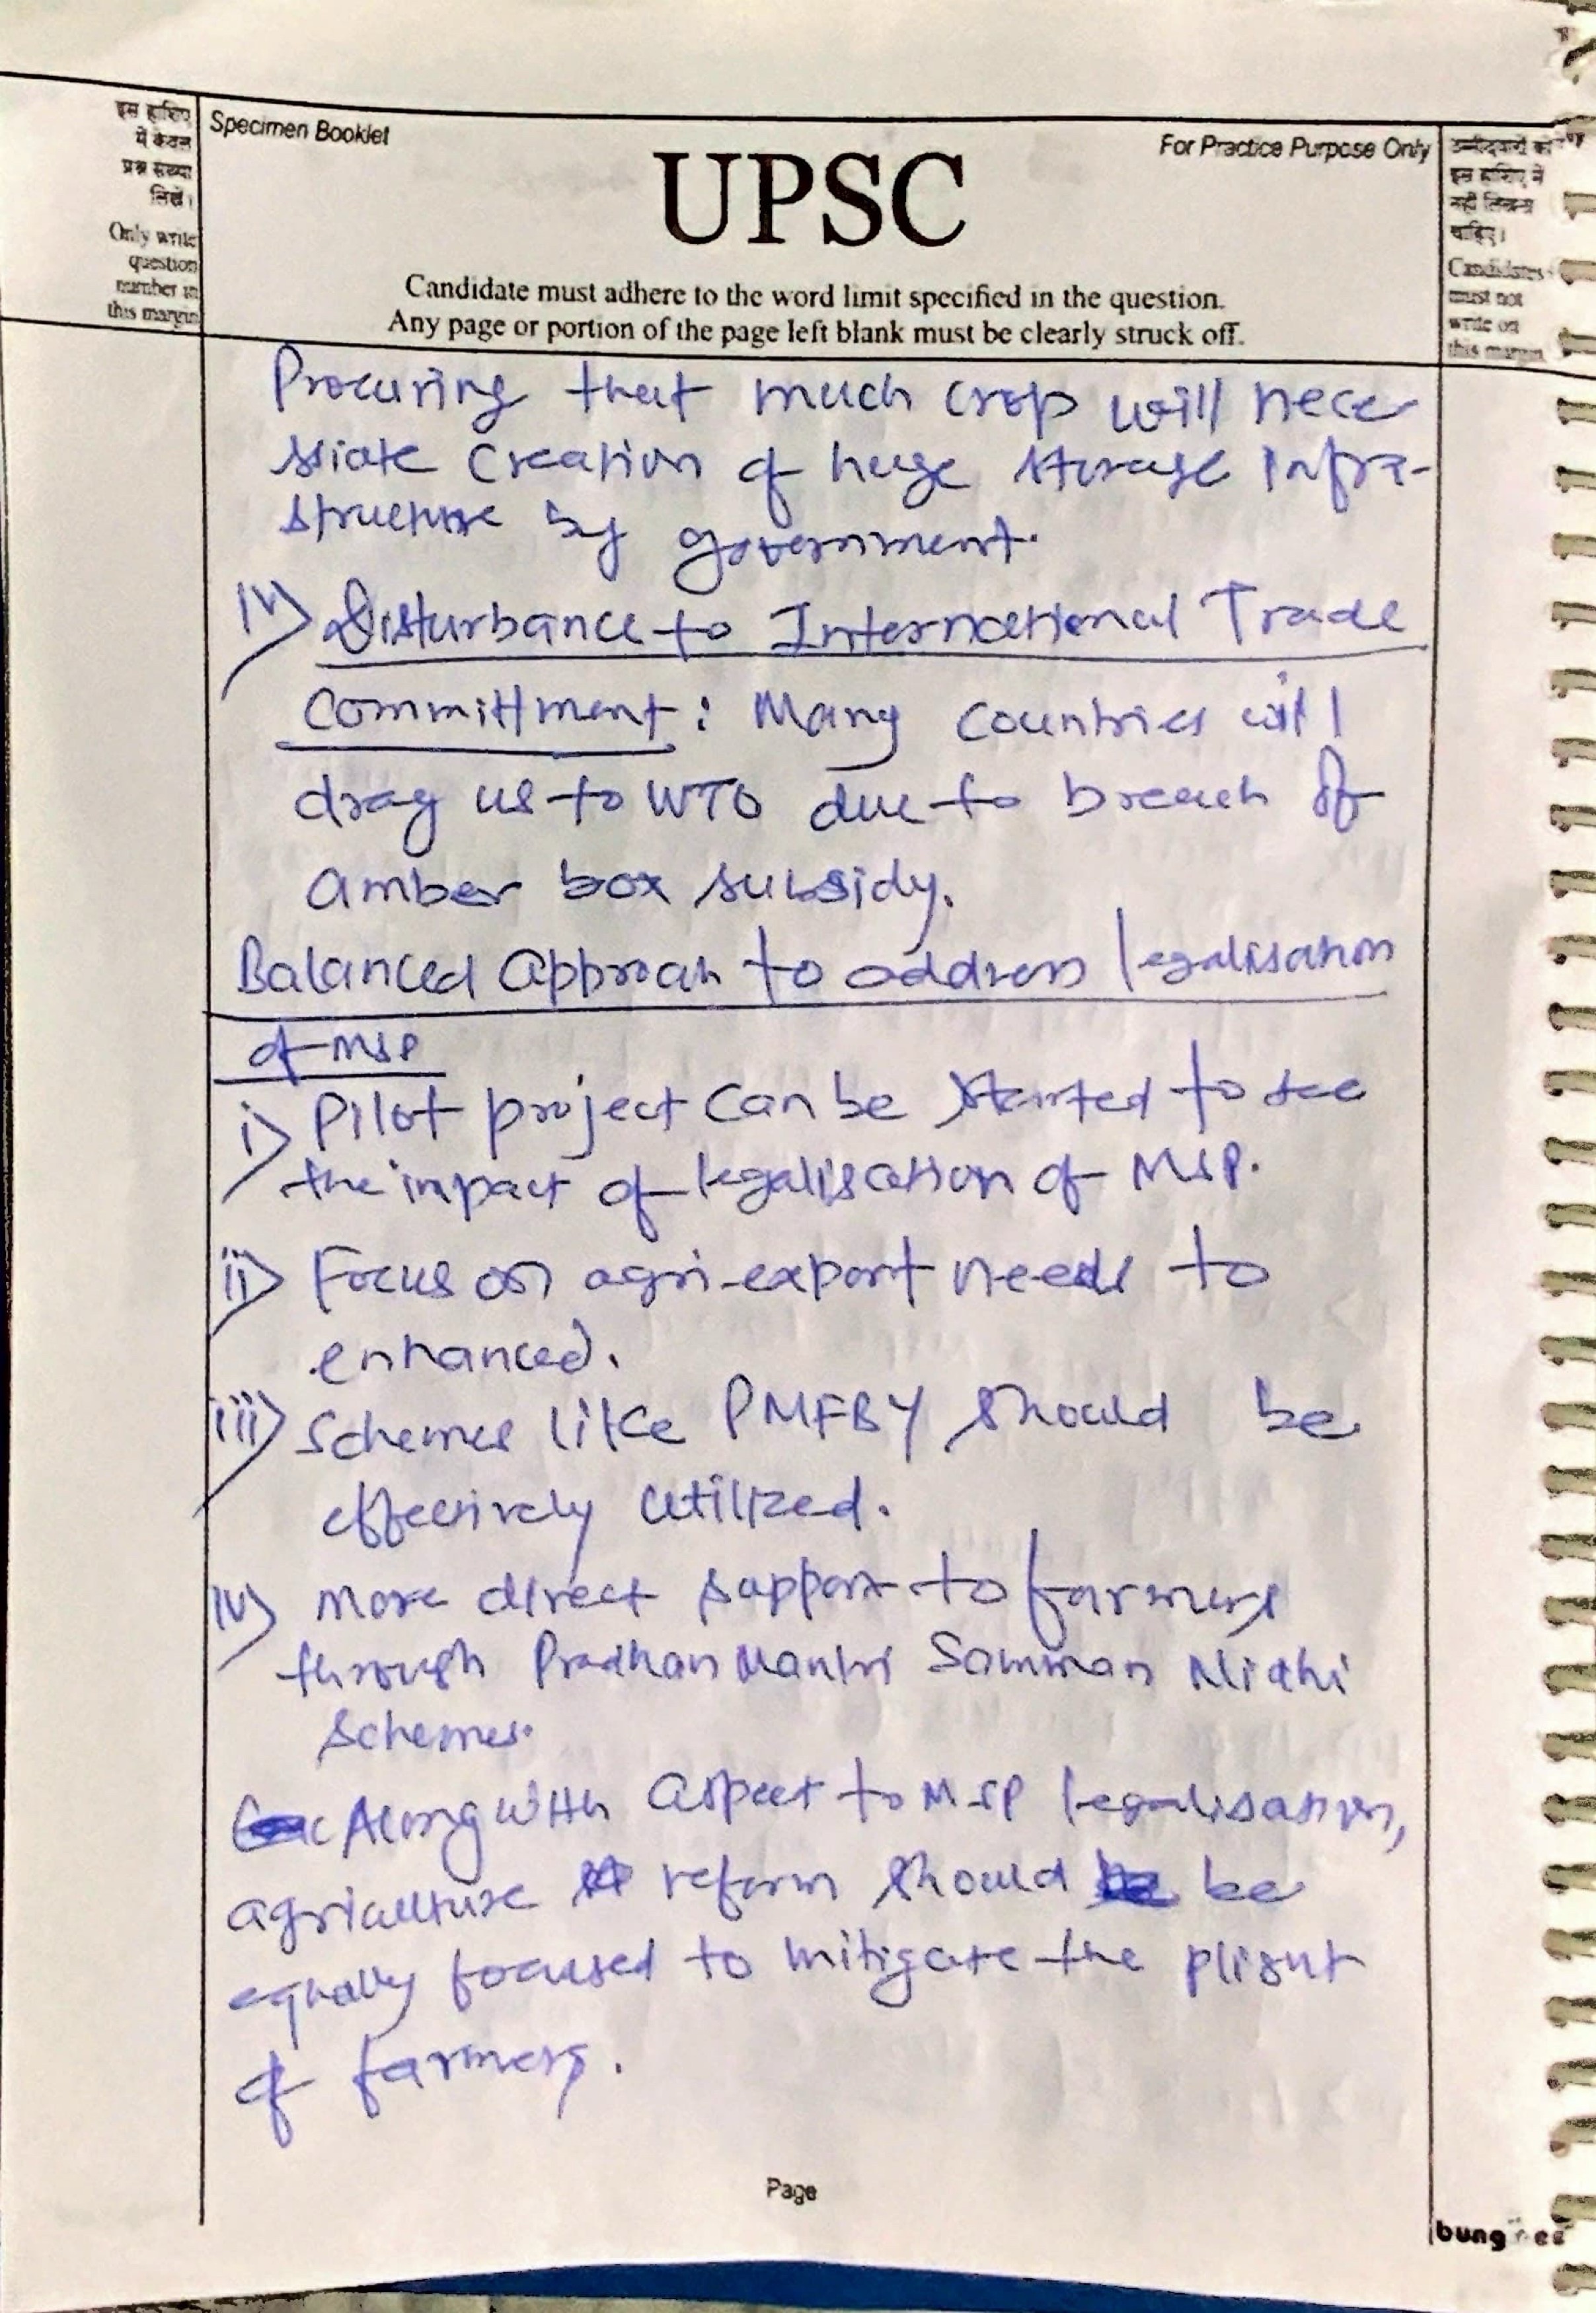 इस हाशिए
में केवल
प्रश्न संख्या
लिखें।
Only write
question
number in
this margin
Specimen Booklet
For Practice Purpose Only
UPSC
Candidate must adhere to the word limit specified in the question.
Any page or portion of the page left blank must be clearly struck off.
उम्मीदवारों को
इस हाशिए में
नहीं लिखना
चाहिए।
Candidates
must not
write on
this margin
Procuring that much crop will nece
ssiate creation of huge storage infra-
structure by government.
iv) Disturbance to International Trade
Committment: Many countries will
drag us to WTO due to breach of
amber box subsidy.
Balanced Approach to address legalisation
of MSP
i) Pilot project can be started to see
the impact of legalisation of MSP.
ii) Focus on agri-export needs to
enhanced.
iii) Schemes like PMFBY should be
effectively utilized.
iv) More direct support to farmers
through Pradhan Mantri Samman Nidhi
Schemes.
Along with aspect to MSP legalisation,
agriculture reform should be
equally focused to mitigate the plight
of farmers.
Page